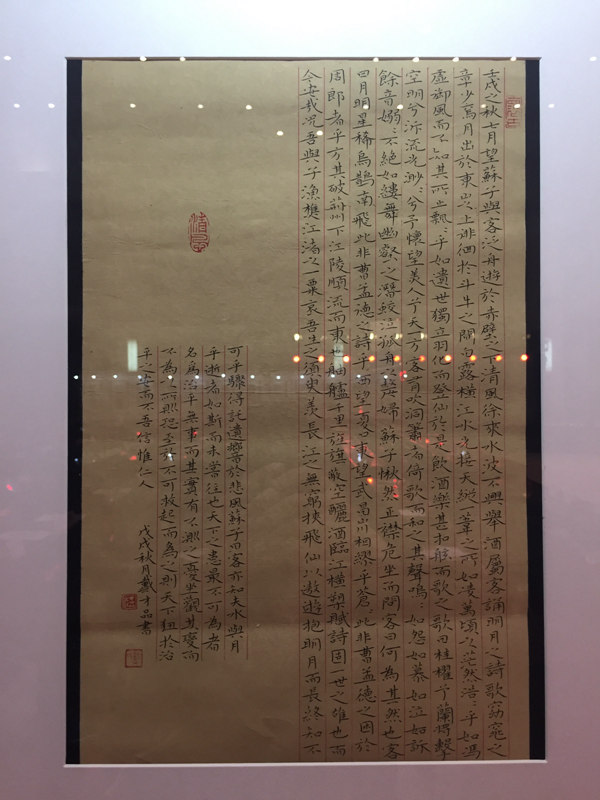 壬戌之秋七月望蘇子與客泛舟遊於赤壁之下清風徐來水波不興舉酒屬客誦明月之詩歌窈窕之
章少焉月出於東山之上徘徊於斗牛之間白露橫江水光接天縱一葦之所如凌萬頃之茫然浩〻乎如馮
虛御風而不知其所止飄〻乎如遺世獨立羽化而登仙於是飲酒樂甚扣舷而歌之歌曰桂櫂兮蘭槳擊
空明兮泝流光渺〻兮予懷望美人兮天一方客有吹洞簫者倚歌而和之其聲嗚〻如怨如慕如泣如訴
餘音嫋〻不絕如縷舞幽壑之潛蛟泣孤舟之嫠婦蘇子愀然正襟危坐而問客曰何為其然也客
曰月明星稀烏鵲南飛此非曹孟德之詩乎西望夏口東望武昌山川相繆乎蒼〻此非曹孟德之困於
周郎者乎方其破荊州下江陵順流而東也舳艫千里旌旗蔽空釃酒臨江橫槊賦詩固一世之雄也而
今安哉況吾與子漁樵江渚之一粟哀吾生之須臾羨長江之無窮挾飛仙以遨遊抱明月而長終知不
可乎驟得託遺響於悲風蘇子曰客亦知夫水與月
乎逝者如斯而未嘗往也天下之患最不可為者
名為治平無事而其實有不測之憂坐觀其變而
不為之所則恐至於不可救起而為之則天下狃於治
平之安而不吾信惟仁人
戊戌秋月戴才品書